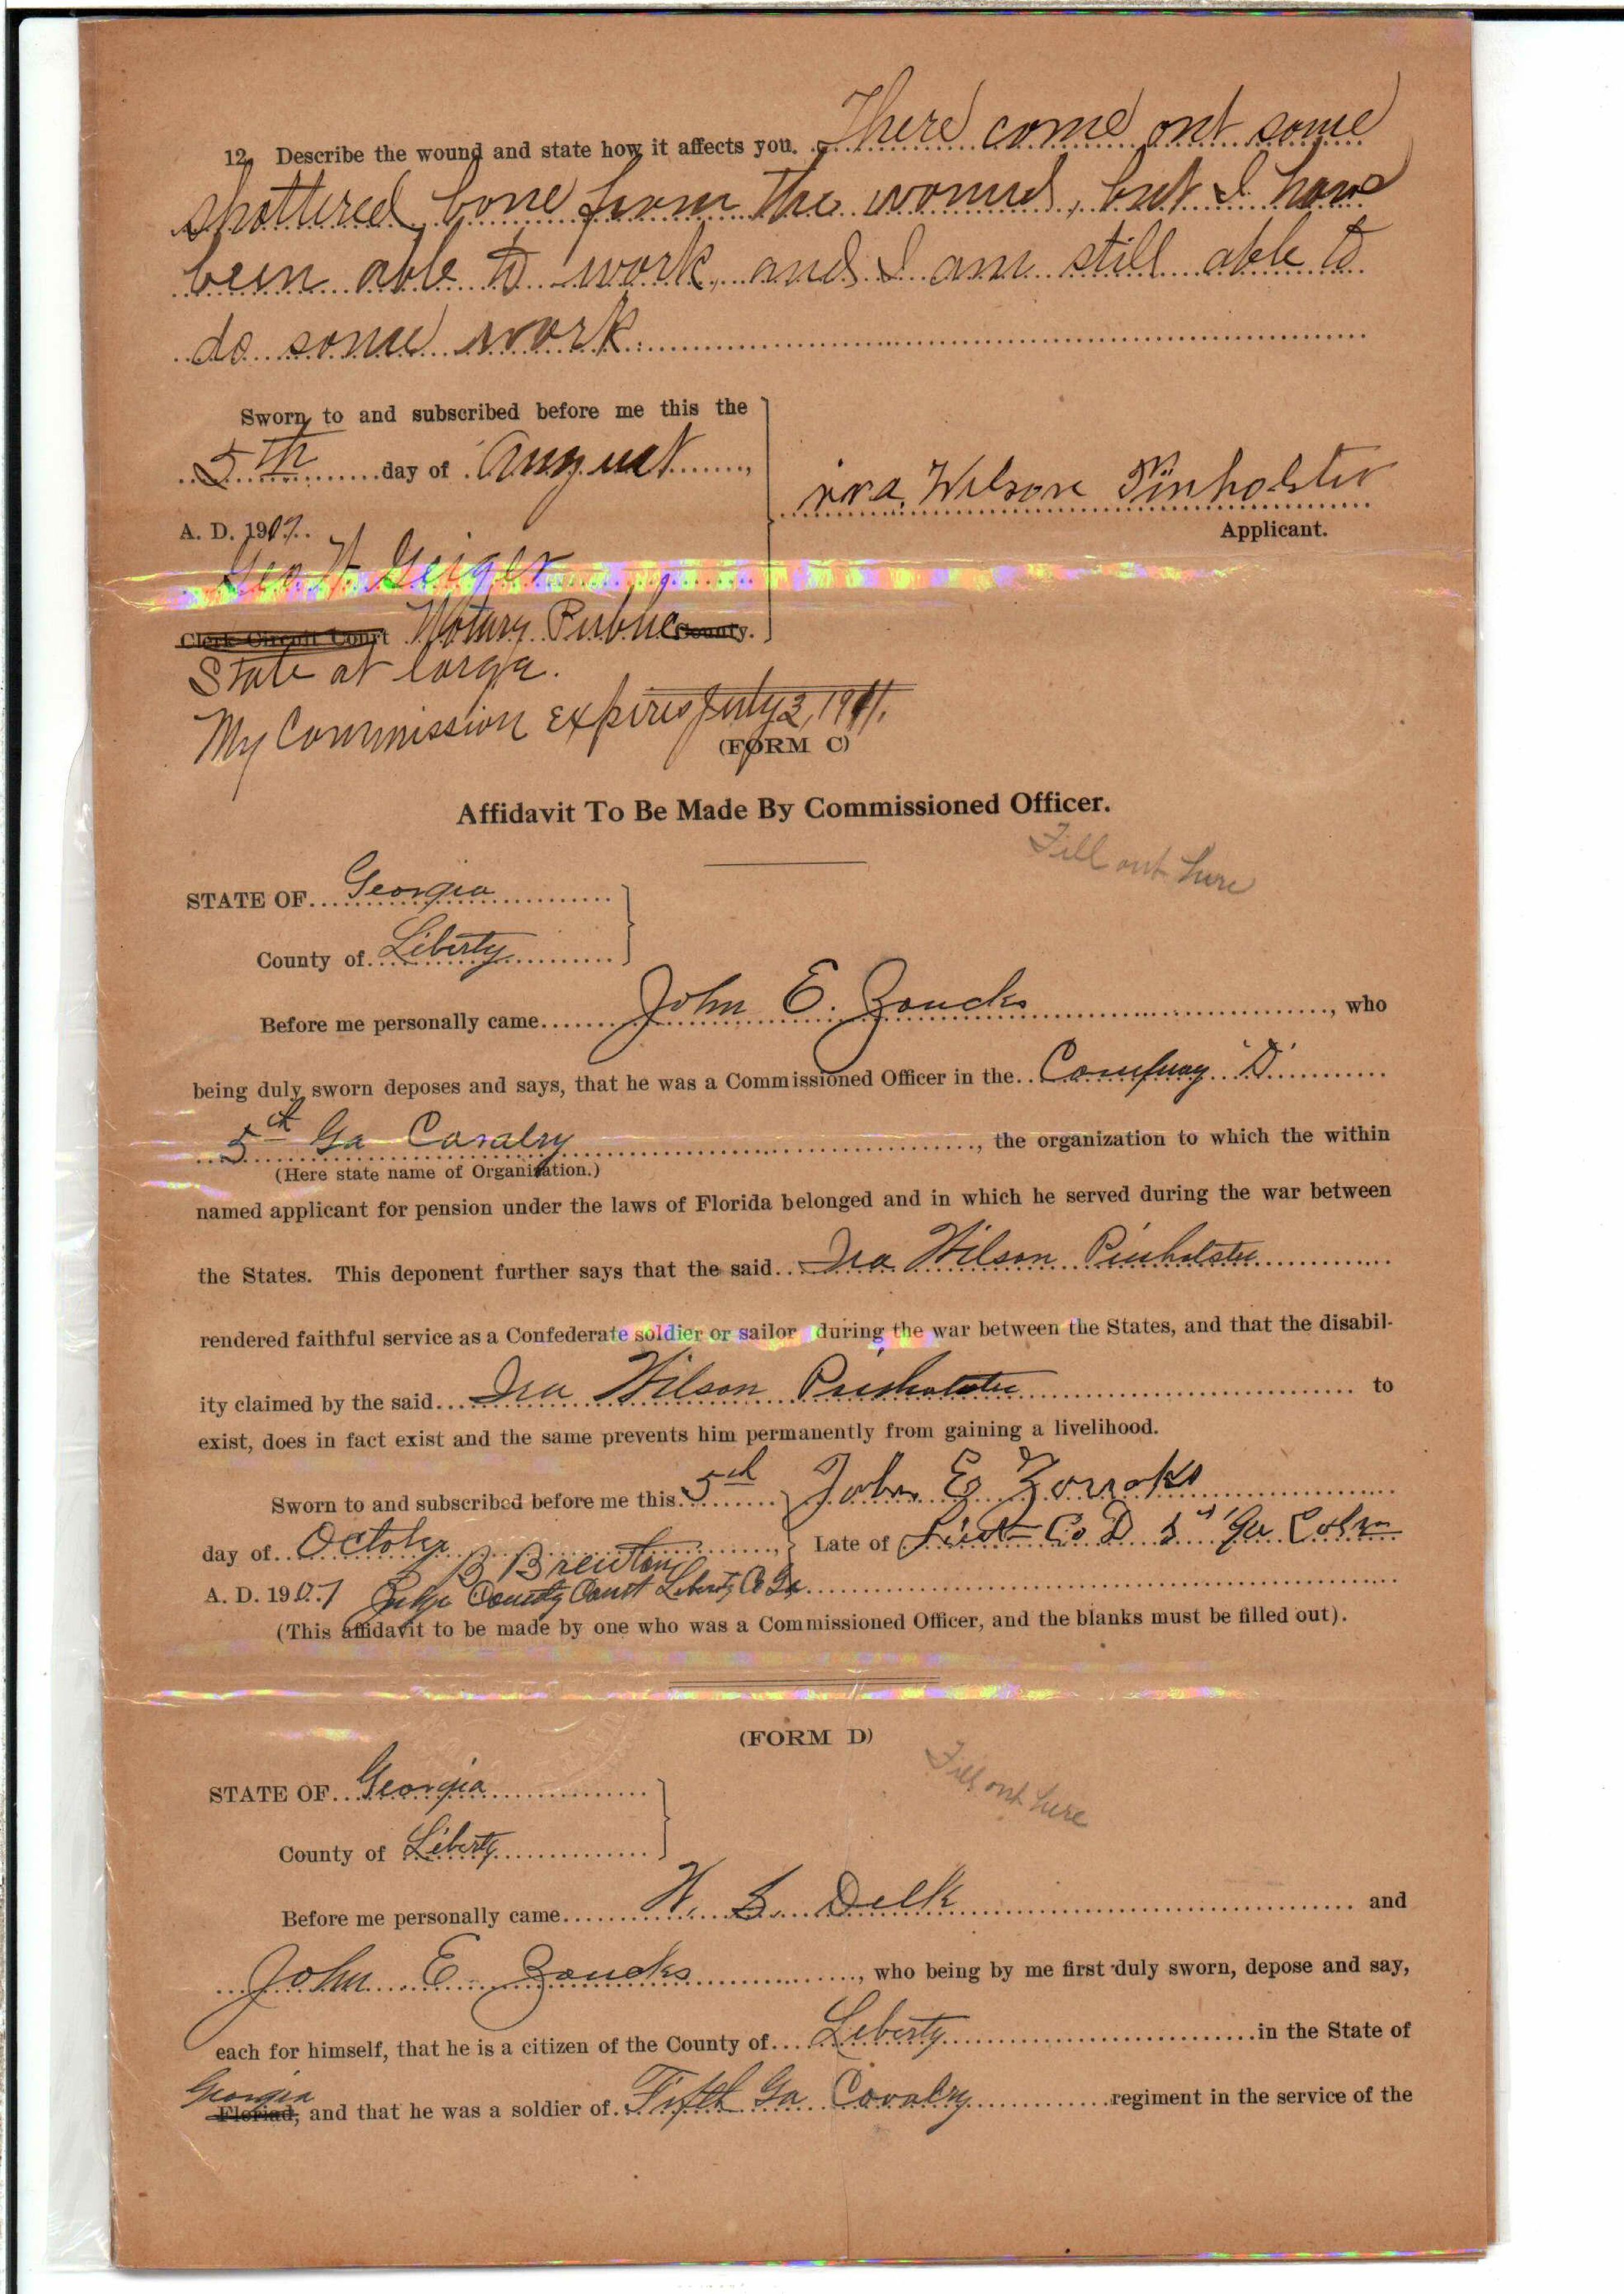 12. Describe the wound and state how it affects you. There come out some
shattered bone from the wound, but I have
been able to work, and I am still able to
do some work
Sworn to and subscribed before me this the
5th day of August,
ira Wilson Pinholster
A. D. 1907.
Applicant.
Geo W. Geiger
Clerk Circuit Court Notary Public County.
State at large.
My Commission expires July 2, 1911.
(FORM C)
Affidavit To Be Made By Commissioned Officer.
Fill out here
STATE OF Georgia
County of Liberty
Before me personally came John E. Zoucks, who
being duly sworn deposes and says, that he was a Commissioned Officer in the Company "D"
5th Ga Cavalry, the organization to which the within
(Here state name of Organization.)
named applicant for pension under the laws of Florida belonged and in which he served during the war between
the States. This deponent further says that the said Ira Wilson Pinholster
rendered faithful service as a Confederate soldier or sailor during the war between the States, and that the disabil-
ity claimed by the said Ira Wilson Pinholster to
exist, does in fact exist and the same prevents him permanently from gaining a livelihood.
Sworn to and subscribed before me this 5th John E Zoucks
day of October, Late of Co D Ga
B Brewton
A. D. 1907 Judge County Court Liberty Co Ga
(This affidavit to be made by one who was a Commissioned Officer, and the blanks must be filled out).
(FORM D)
Fill out here
STATE OF Georgia
County of Liberty
Before me personally came W. S. Delk and
John E. Zoucks, who being by me first duly sworn, depose and say,
each for himself, that he is a citizen of the County of Liberty in the State of
Georgia
Floriad, and that he was a soldier of Fifth Ga Cavalry regiment in the service of the